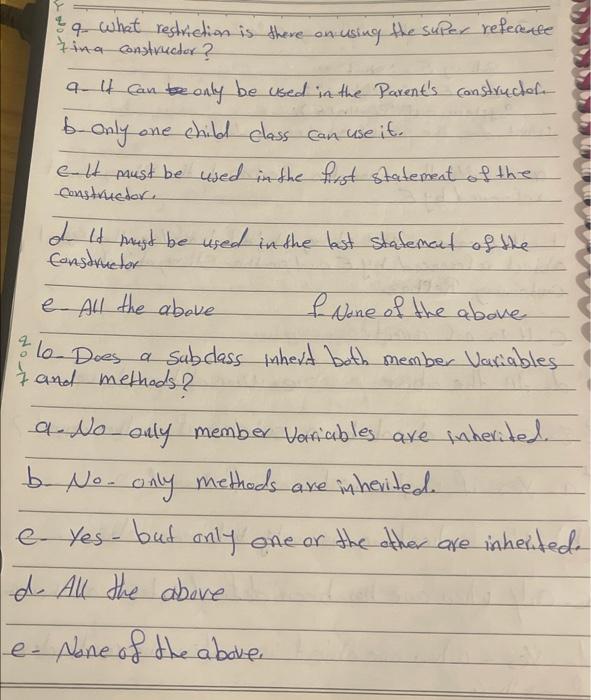 9- What restriction is there on using the super reference
in a constructor?
a- It can only be used in the Parent's constructor.
b- Only one child class can use it.
c- It must be used in the first statement of the
constructor.
d- It must be used in the last statement of the
Constructor
e- All the above f- None of the above
10- Does a subclass inherit both member Variables
and methods?
a- No- only member Variables are inherited.
b- No- only methods are inherited.
c- Yes- but only one or the other are inherited.
d- All the above
e- None of the above.